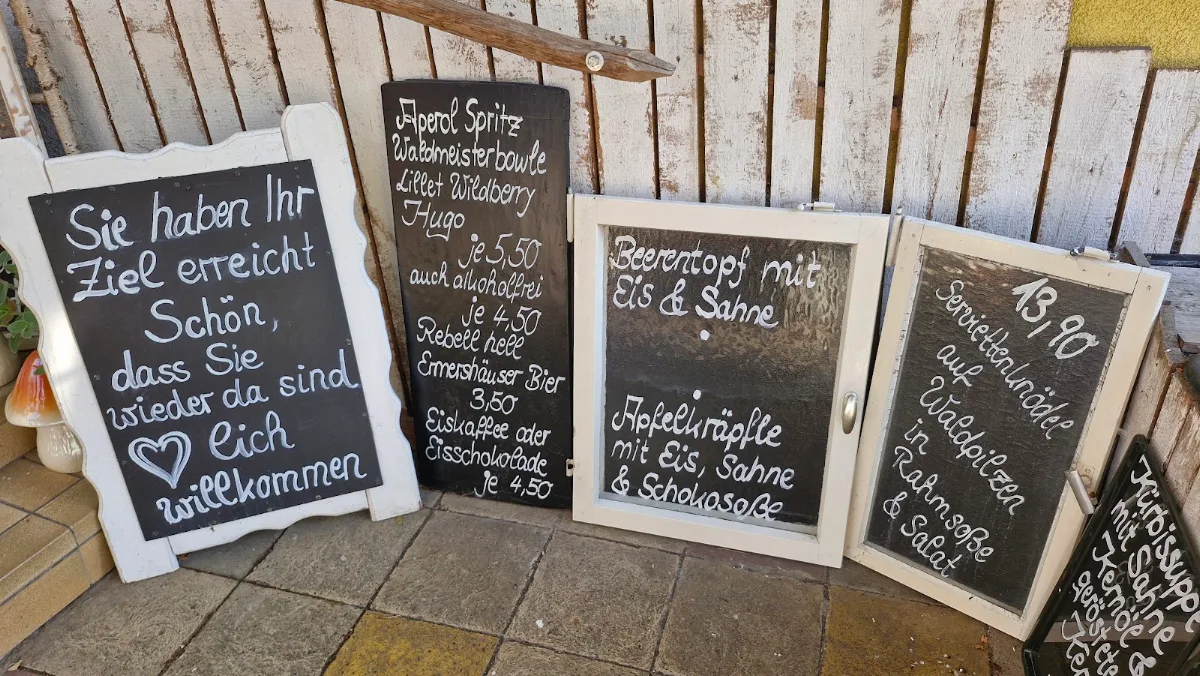 Sie haben Ihr
Ziel erreicht
Schön,
dass Sie
wieder da sind
♡ lich
willkommen
Aperol Spritz
Waldmeisterbowle
Lillet Wildberry
Hugo
je 5,50
auch alkoholfrei
je 4,50
Rebell hell
Ermershäuser Bier
3,50
Eiskaffee oder
Eisschokolade
je 4,50
Beerentopf mit
Eis & Sahne
Apfelkräpfle
mit Eis, Sahne
& Schokosoße
13,90
Serviettenknödel
auf
Waldpilzen
in
Rahmsoße
& Salat
Kürbissuppe
mit Sahne
Kernöl &
geröstete